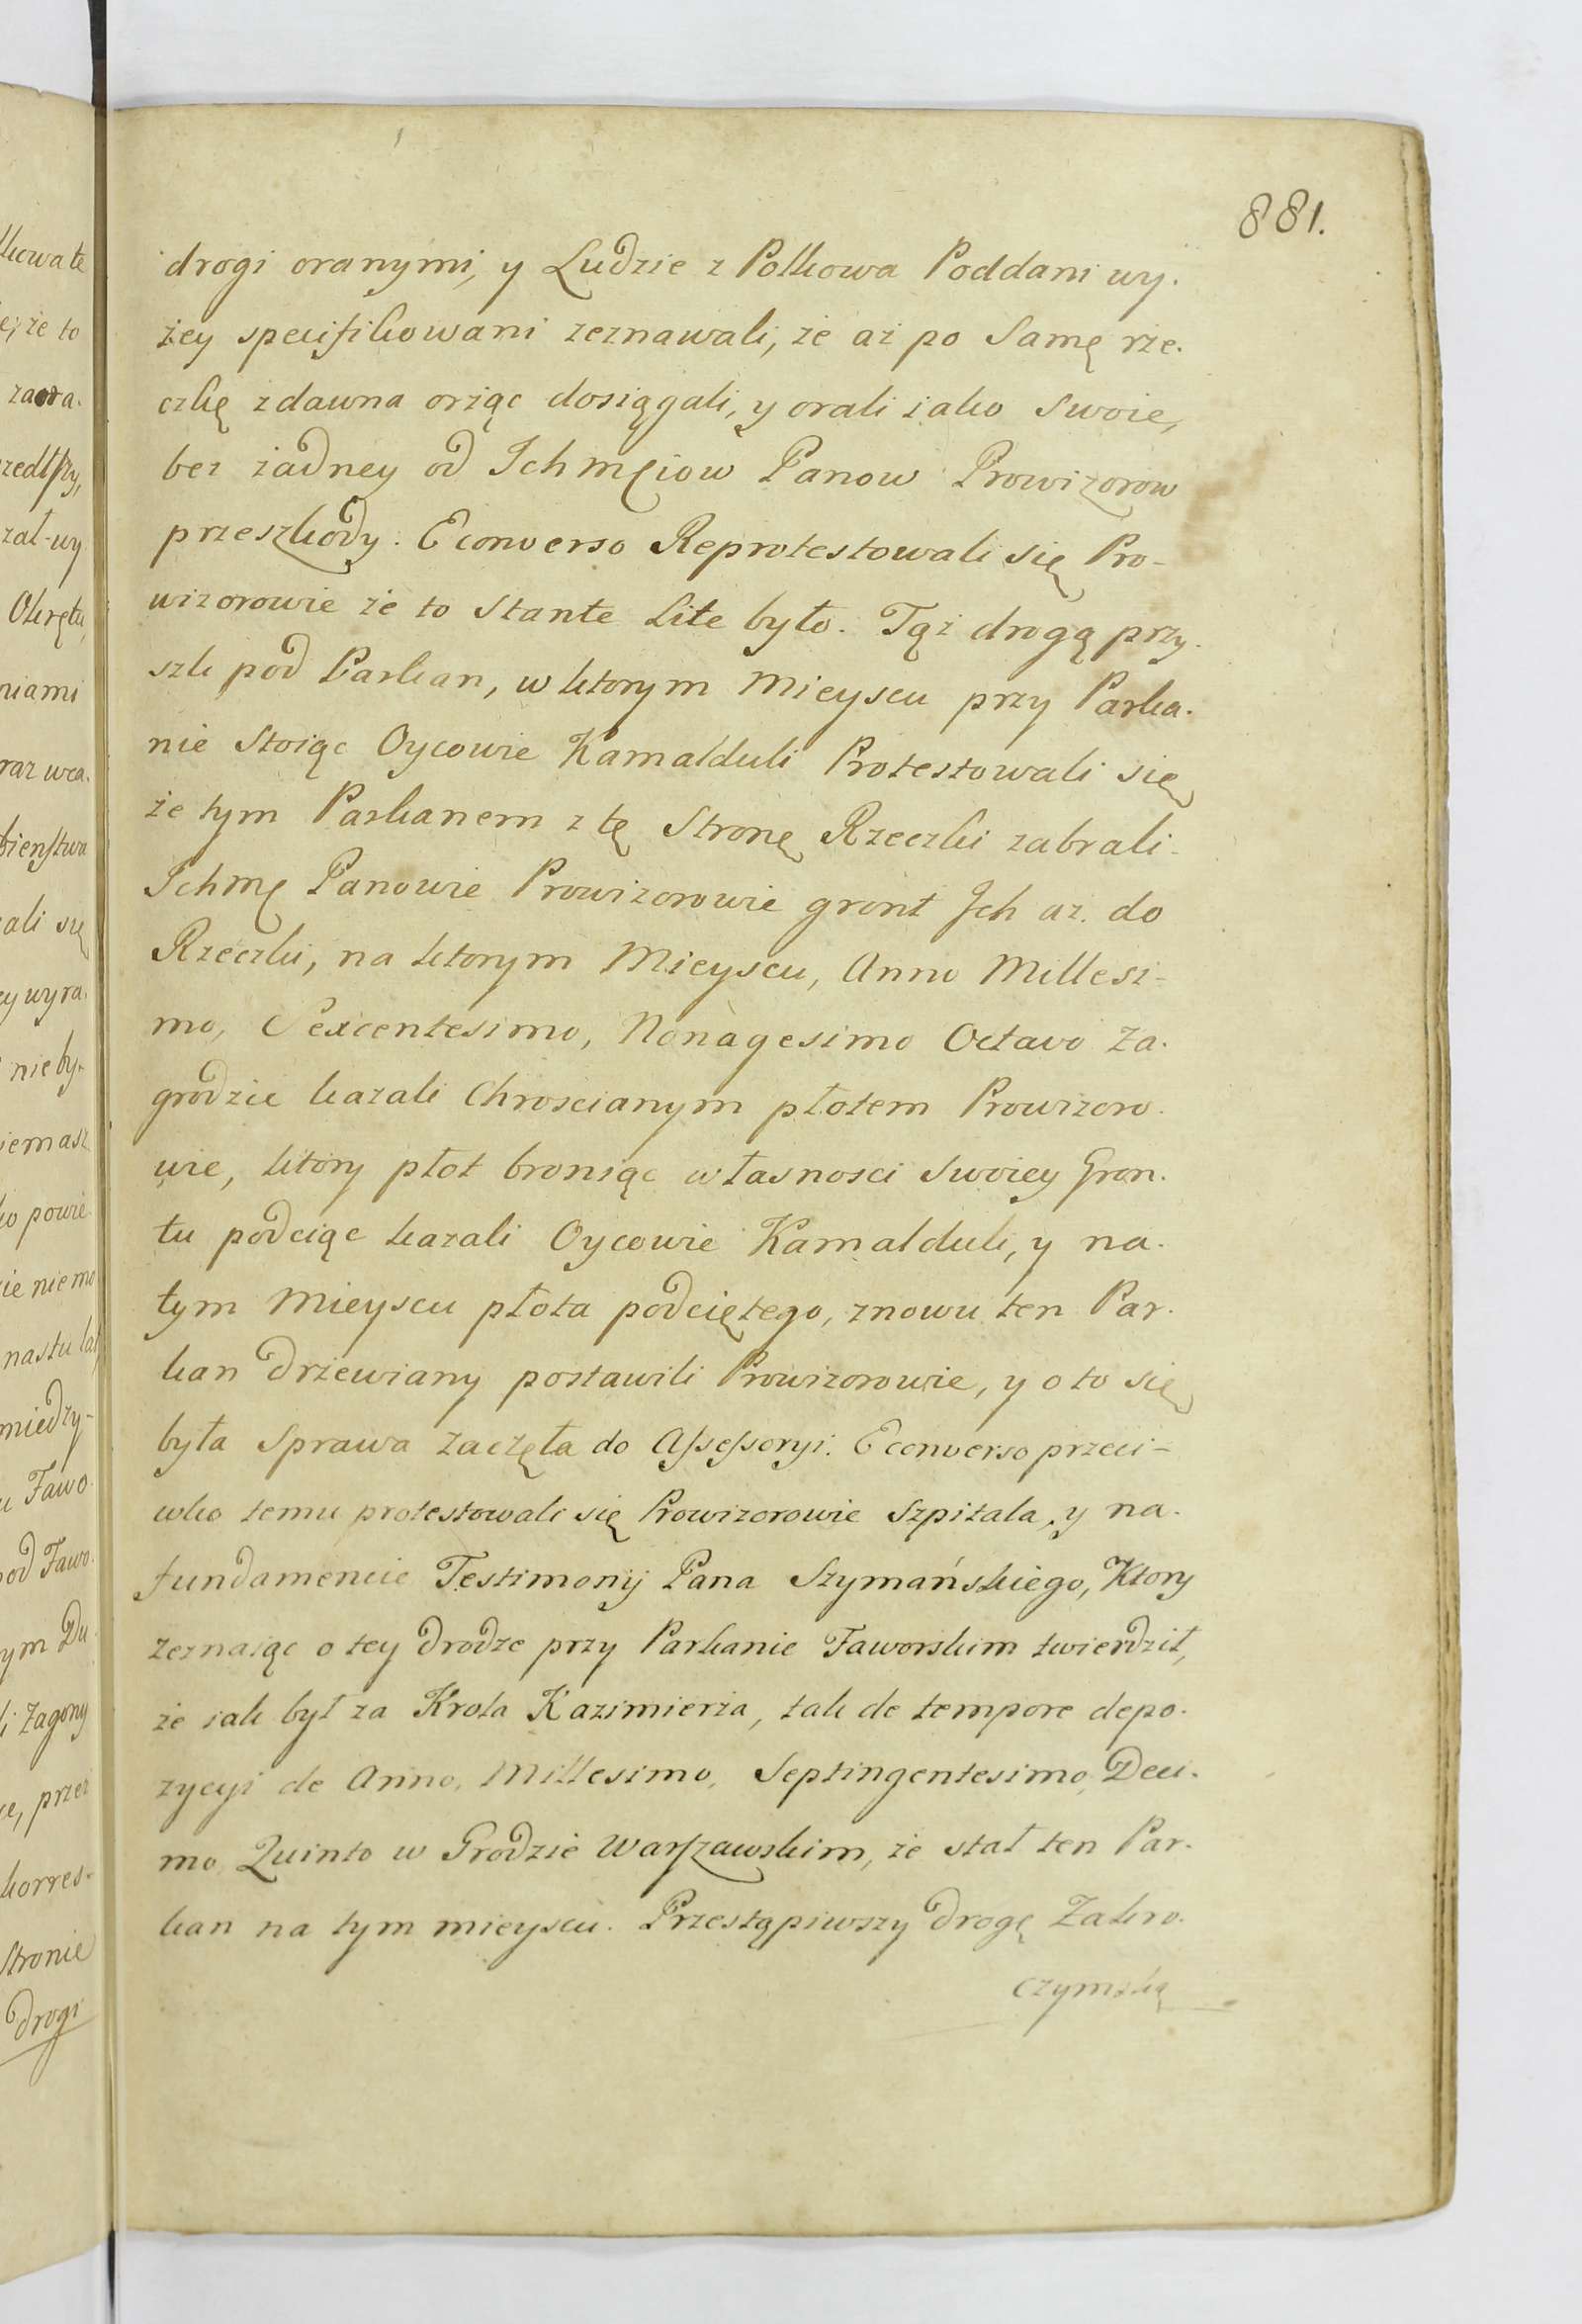 881.
drogi oranymi, y Ludzie z Polkowa Poddani wy-
żey specifikowani zeznawali, że aż po Samę rze-
czkę zdawna orząc dosiągali, y orali iako Swoie,
bez żadney od Ichmęiow Panow Prowizorow
przeszkody. Econverso Reprotestowali się Pro-
wizorowie że to Stante Lite było. Tąż drogą przy-
szli pod Parkan, w ktorym Mieyscu przy Parka-
nie Stoiąc Oycowie Kamalduli Protestowali się
że tym Parkanem z tę Stronę Rzeczki zabrali
Ichmę Panowie Prowizorowie gront Ich aż do
Rzeczki, na ktorym Mieyscu, Anno Millesi-
mo, Sexcentesimo, Nonagesimo Octavo Za-
grodzić kazali Chroscianym płotem Prowizoro-
wie, ktory płot broniąc własnosci Swoiey Gron-
tu podciąc kazali Oycowie Kamalduli, y na
tym Mieyscu płota podciętego, znowu ten Par-
kan drzewiany postawili Prowizorowie, y o to się
była Sprawa zaczęta do Assessoryi. Econverso przeci-
wko temu protestowali się Prowizorowie Szpitala, y na
fundamencie Testimonij Pana Szymańskiego, Ktory
zeznaiąc o tey drodze przy Parkanie Faworskim twierdził,
że iak był za Krola Kazimierza, tak de tempore depo-
zycyi de Anno, Millesimo, Septingentesimo, Deci-
mo, Quinto w Grodzie Warszawskim, że stał ten Par-
kan na tym mieyscu. Przestąpiwszy drogę Zakro-
czymską